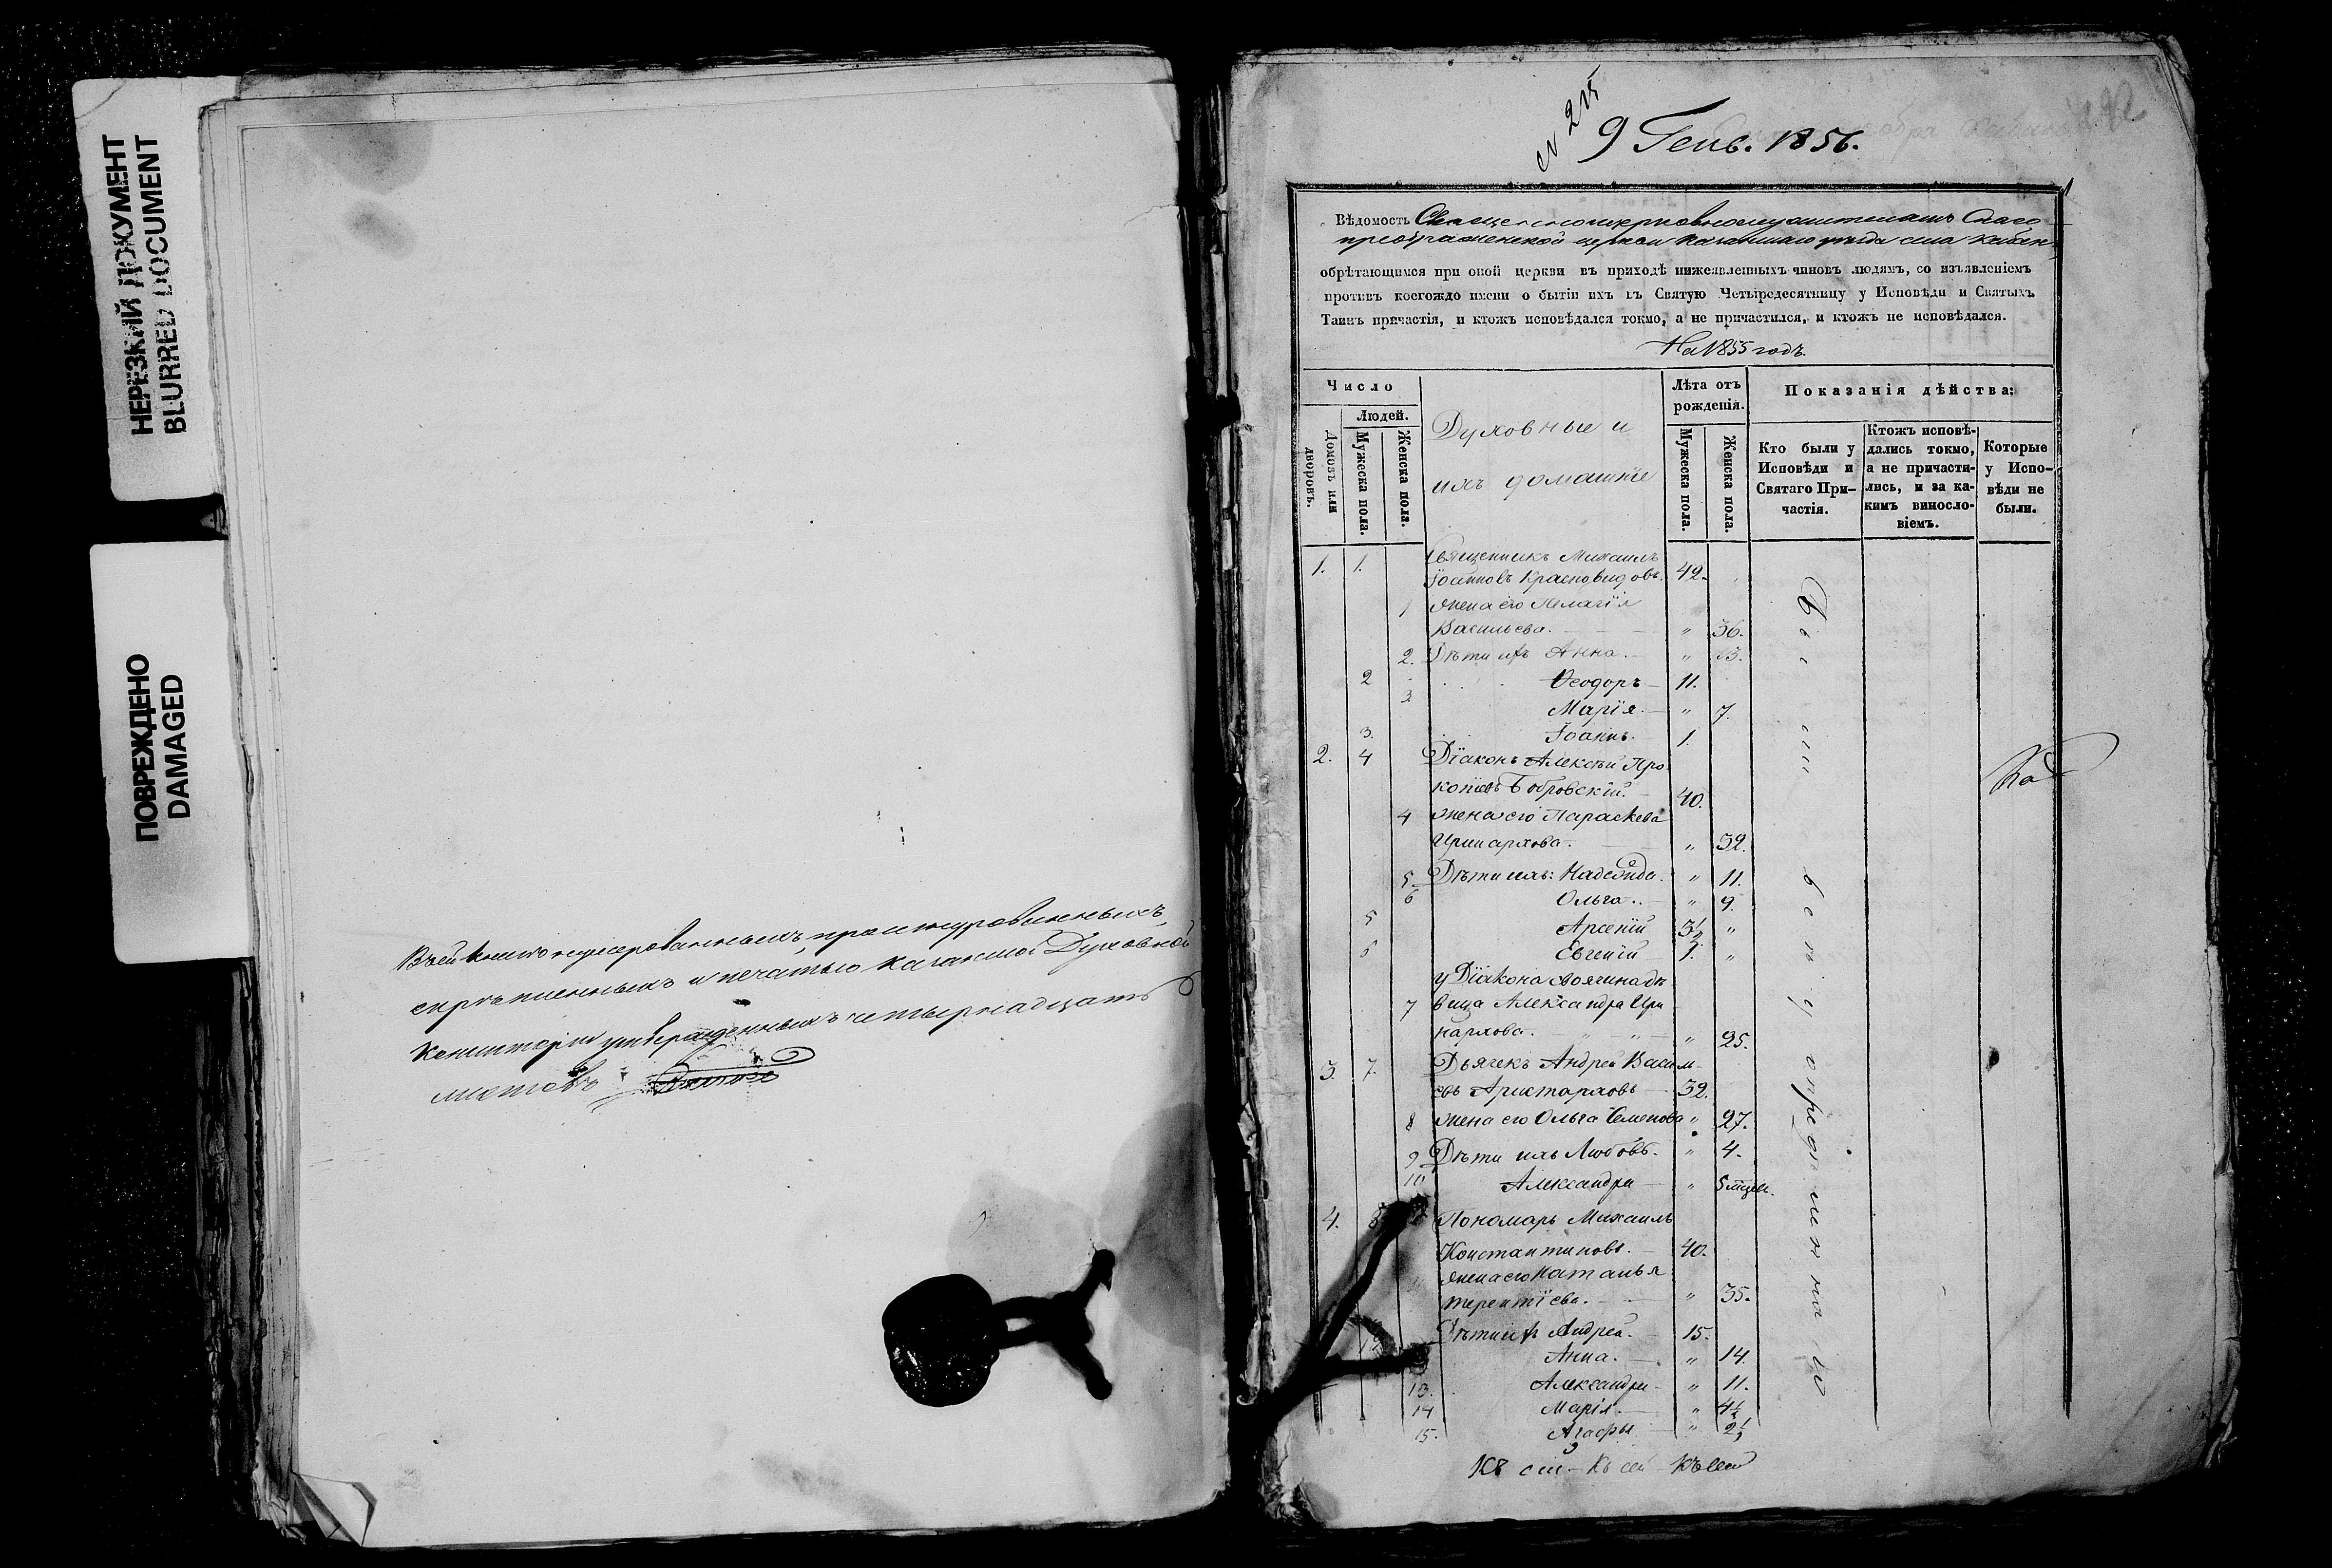 НЕРЕЗКИЙ ДОКУМЕНТ
BLURRED DOCUMENT
ПОВРЕЖДЕНО
DAMAGED
Въ сей книге нумерованныхъ, прошнурованныхъ,
скрѣпленныхъ и печатью Казанской Духовной
Консисторіи утвержденныхъ четырнадцать
листовъ
9 Генв. 1856.
Вѣдомость Священноцерковнослужителямъ Спасо
преображенской церкви Казанскаго уѣзда села Кабан
обрѣтающимся при оной церкви въ приходѣ нижеявленныхъ чиновъ людямъ, со изъявленіемъ
противъ коегождо имени о бытіи ихъ въ Святую Четыредесятницу у Исповѣди и Святыхъ
Таинъ причастія, и ктожъ исповѣдался токмо, а не причастился, и ктожъ не исповѣдался.
На 1855 годъ.
Число
Людей.
Домовъ или дворовъ.
Мужеска пола.
Женска пола.
Духовные и
ихъ домашніе
Лѣта отъ рожденія.
Мужеска пола.
Женска пола.
Показанія дѣйства:
Кто были у Исповѣди и Святаго При-частія.
Ктожъ исповѣ-дались токмо, а не причасти-лись, и за ка-кимъ винослo-віемъ.
Которые у Испо-вѣди не были.
1. 1. Священникъ Михаилъ
Іоанновъ Красновидовъ. 42.
1 Жена его Пелагія
Васильева. — " 36.
2. Дѣти ихъ Анна. — " 13.
2 Ѳеодоръ — 11.
3 Марія. — " 7.
3. Іоаннъ. 1.
2. 4 Діаконъ Алексѣй Про
копіевъ Бобровскій. — 40.
4 Жена его Параскева
Иринархова. — " 32.
5. Дѣти ихъ: Надежда. " 11.
6 Ольга.. — " 9.
5 Арсеній 3½ "
6 Евгеній 1. "
у Діакона своячина дѣ
7 вица Александра Ири
нархова. — " 25.
3. 7. Дьячекъ Андрей Василь
евъ Аристарховъ — 32.
8 Жена его Ольга Семенова " 27.
9 Дѣти ихъ Любовь. — " 4.
10 Александра — " 5 мѣсяц.
4. 8 Пономарь Михаилъ
Константиновъ. — 40.
Жена его Наталья
Терентіева. — " 35.
Дѣти ихъ Андрей. — 15.
Анна. — " 14.
13. Александра — " 11.
14 Марія. — " 4½
15. Агафья " 2½
Всѣ сіи были у
Ка
Къ сей — Къ сей — Къ сей